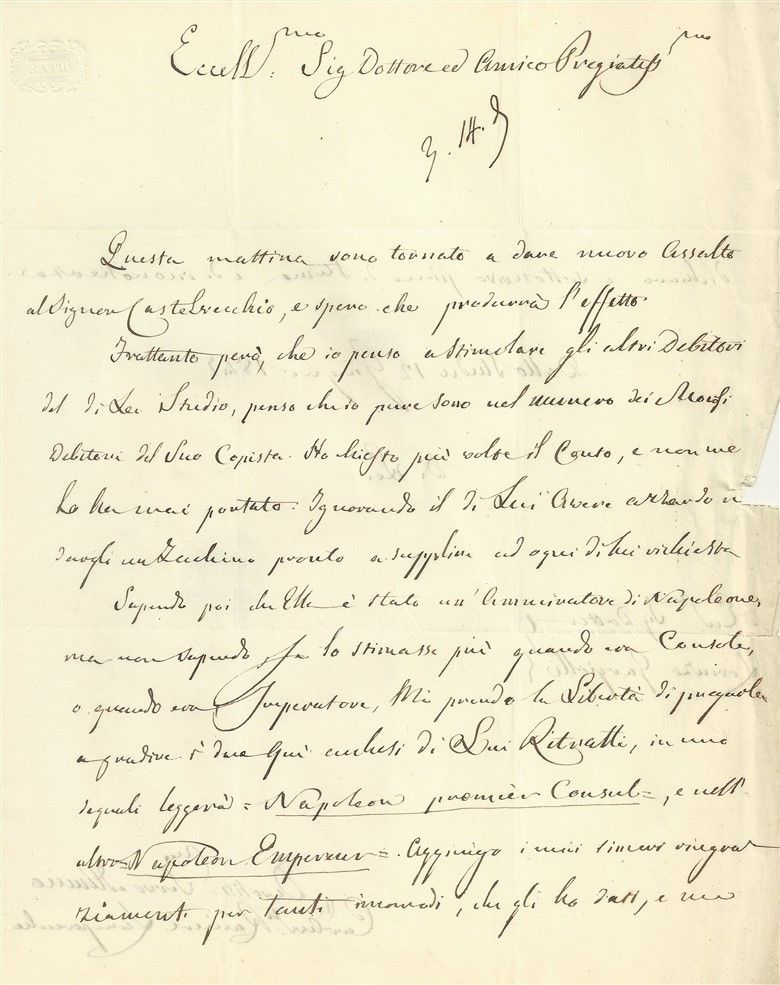 BATH
Eccell.mo Sig Dottore ed Amico Pregiatiss.mo
Questa mattina sono tornato a dare nuovo Assalto
al Signor Castelvecchio, e spero che produrrà l'effetto
Frattanto però, che io penso a stimolare gli altri Debitori
del di Lei Studio, penso che io pure sono nel numero dei Morosi
Debitori del Suo Copista. Ho chiesto più volte il Conto, e non me
lo ha mai portato. Ignorando il di Lui Avere azzardo
dargli un Zecchino pronto a supplire ad ogni di lui richiesta
Sapendo poi che Ella è stato un' Ammiratore di Napoleone,
ma non sapendo se lo stimasse più quando era Console,
o quando era Imperatore, Mi prendo la Libertà di pregarla
a gradire i due qui acclusi di Lui Ritratti, in uno
dequali leggerà = Napoleon premièr Consul =, e nell'
altro = Napoleon Empereur =. Aggiungo i miei sinceri ringra
ziamenti per tanti incomodi, che gli ho dati, e me